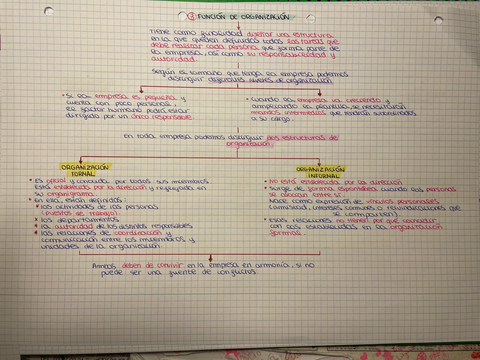 ③ FUNCIÓN DE ORGANIZACIÓN
Tiene como finalidad diseñar una estructura
en la que queden definidas todas las tareas que
debe realizar cada persona que forma parte de
la empresa, así como su responsabilidad y
autoridad.
Según el tamaño que tenga la empresa podemos
distinguir diferentes niveles de organización
• Si la empresa es pequeña y
cuenta con poco personal,
el factor humano podrá estar
dirigido por un único responsable
• Cuando la empresa va creciendo y
ampliando la plantilla, se necesitarán
mandos intermedios que tendrán subordinados
a su cargo.
En toda empresa podemos distinguir dos estructuras de
organización:
ORGANIZACIÓN
FORMAL
• Es oficial y conocida por todos sus miembros
Está establecida por la dirección y reflejada en
su organigrama.
• En ella, están definidos:
• las actividades de las personas
(puestos de trabajo).
• los departamentos
• la autoridad de los distintos responsables
• las relaciones de coordinación y
comunicación entre los miembros y
unidades de la organización
ORGANIZACIÓN
INFORMAL
• No está establecida por la dirección
• Surge de forma espontánea cuando las personas
se asocian entre sí
Nace como expresión de vínculos personales
(amistad, intereses comunes o reivindicaciones que
se comparten)
• Esas relaciones no tienen por qué coincidir
con las establecidas en la organización
formal.
Ambas deben de convivir en la empresa en armonía, si no
puede ser una fuente de conflictos